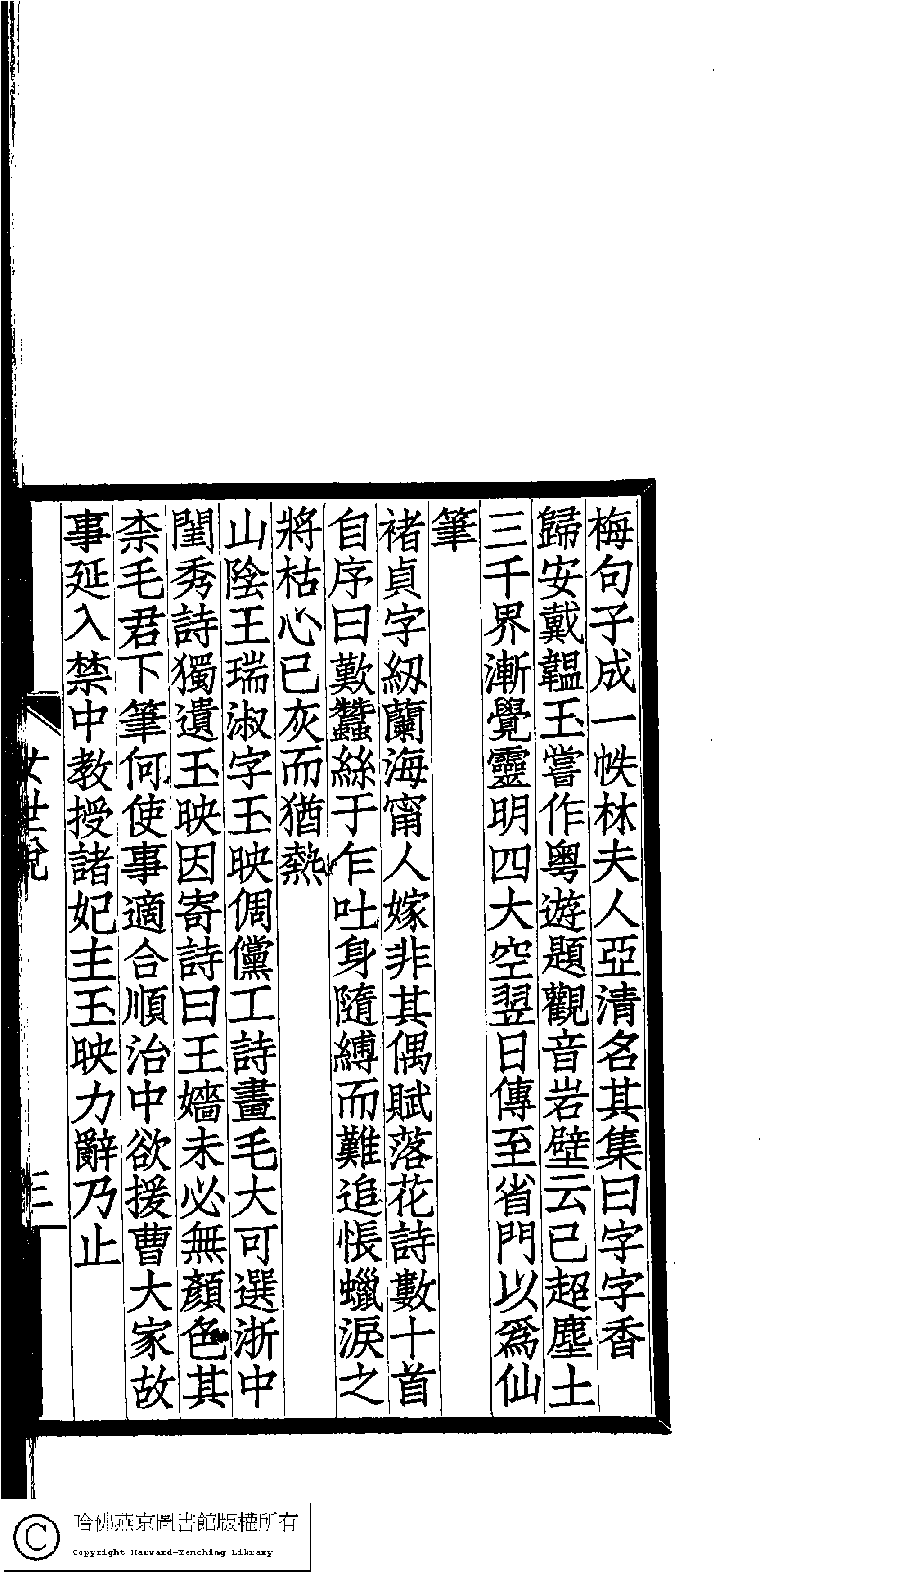 梅句子成一帙林夫人亞清名其集曰字字香
歸安戴韞玉嘗作粵遊題觀音岩壁云已超塵土
三千界漸覺靈明四大空翌日傳至省門以爲仙
筆
褚貞字紉蘭海甯人嫁非其偶賦落花詩數十首
自序曰歎蠶絲于乍吐身隨縛而難追悵蠟淚之
將枯心已灰而猶熱
山陰王瑞淑字玉映倜儻工詩畫毛大可選浙中
閨秀詩獨遺玉映因寄詩曰王嬙未必無顏色其
柰毛君下筆何使事適合順治中欲援曹大家故
事延入禁中教授諸妃主玉映力辭乃止
女世說
三
哈佛燕京圖書館版權所有
Copyright Harvard-Yenching Library